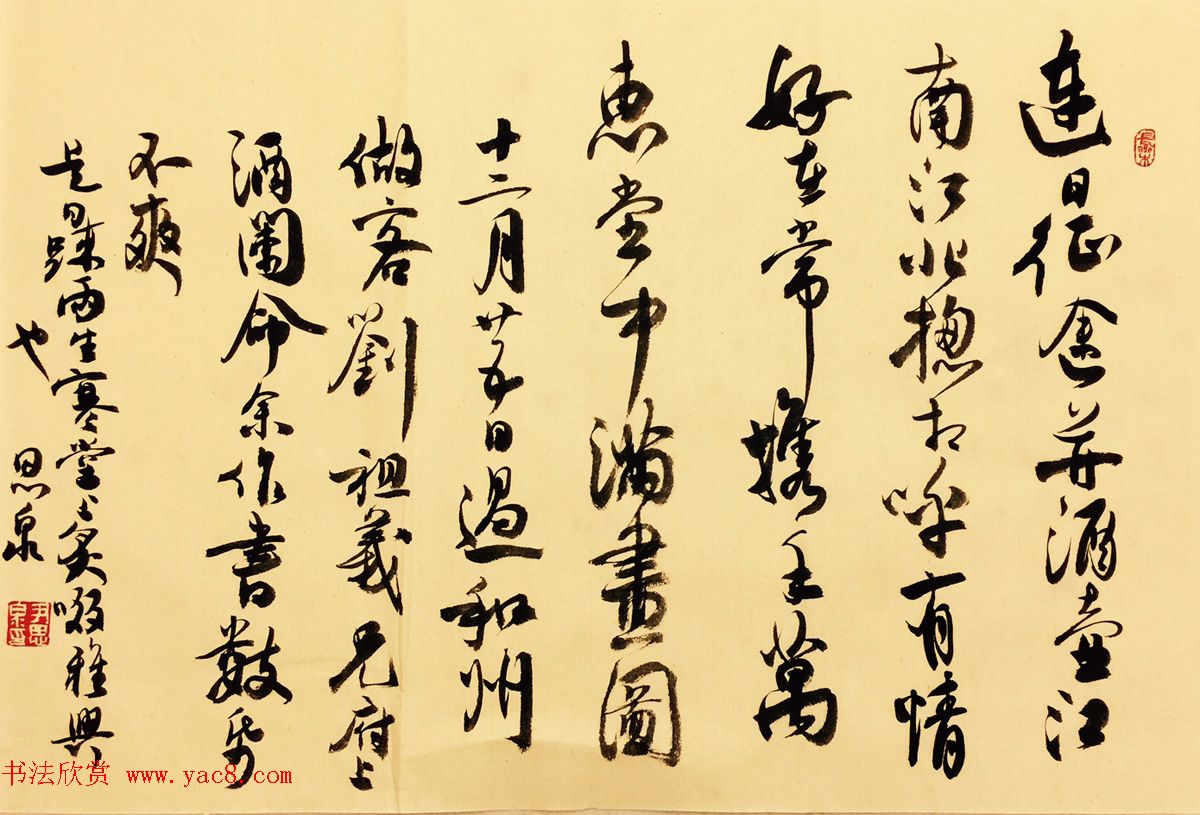 連日征途並酒壺江
南江北總相呼有情
好在常攜手萬
惠堂中滿畫圖
十二月廿五日過和州
做客劉祖義兄府上
酒闌命余作書數紙
不爽
是日踈雨生寒堂上炙啜雅興
也
思泉
尹思泉印
书法欣赏 www.yac8.com